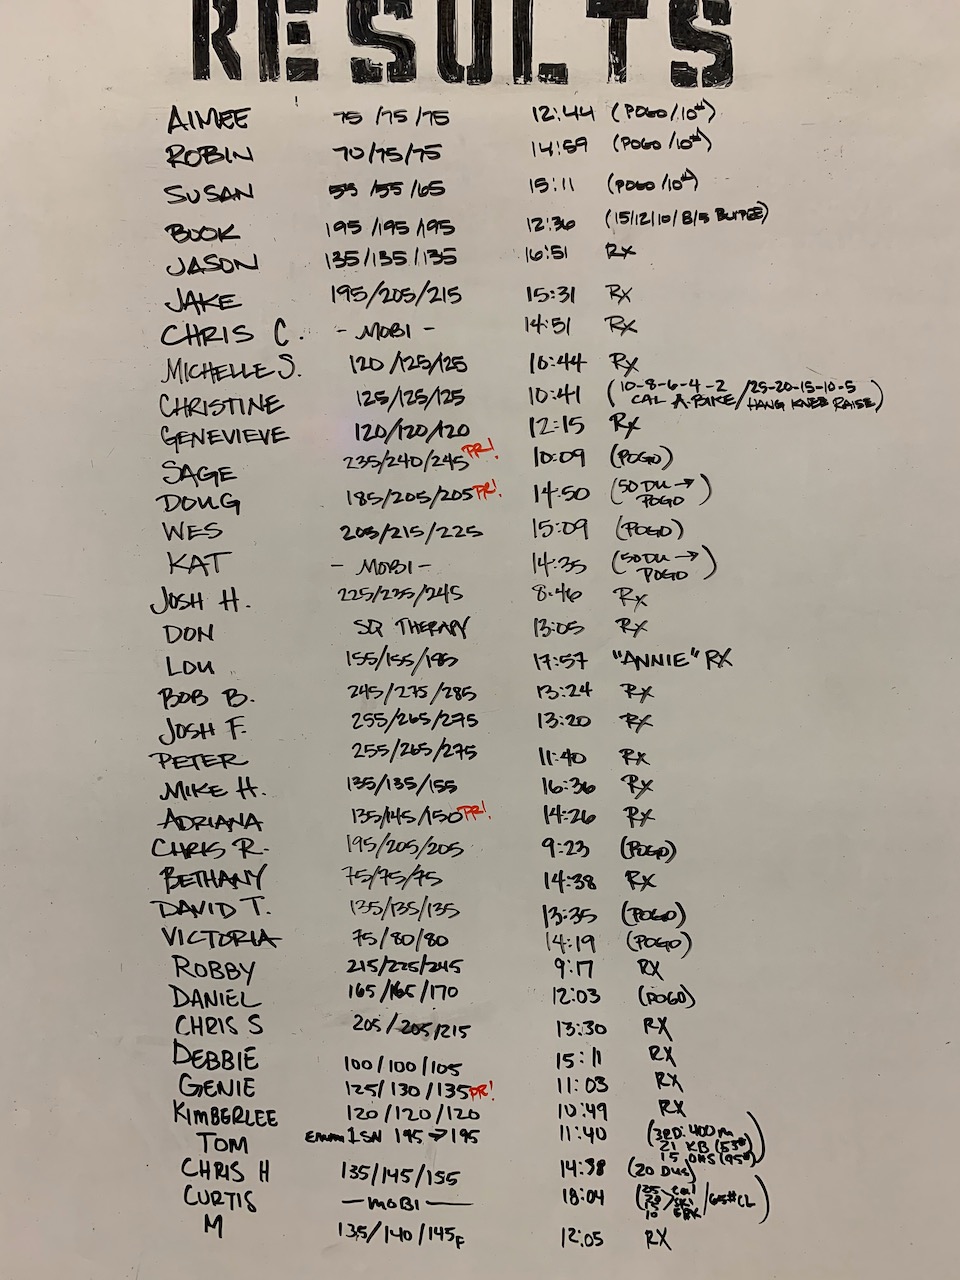 RESULTS
AIMEE 75/75/75 12:44 (POGO/10#)
ROBIN 70/75/75 14:59 (POGO/10#)
SUSAN 55/55/65 15:11 (POGO/10#)
BOOK 195/195/195 12:36 (15/12/10/8/5 BURPEE)
JASON 135/135/135 16:51 RX
JAKE 195/205/215 15:31 RX
CHRIS C. - MOBI - 14:51 RX
MICHELLE S. 120/125/125 10:44 RX
CHRISTINE 125/125/125 10:41 (10-8-6-4-2 CAL A-BIKE/25-20-15-10-5 HANG KNEE RAISE)
GENEVIEVE 120/120/120 12:15 RX
SAGE 235/240/245 PR! 10:09 (POGO)
DOUG 185/205/205 PR! 14:50 (50 DU → POGO)
WES 205/215/225 15:09 (POGO)
KAT - MOBI - 14:35 (50DU → POGO)
JOSH H. 225/235/245 8:46 RX
DON SQ THERAPY 13:05 RX
LOU 155/155/195 17:57 "ANNIE" RX
BOB B. 245/275/285 13:24 RX
JOSH F. 255/265/275 13:20 RX
PETER 255/265/275 11:40 RX
MIKE H. 135/135/155 16:36 RX
ADRIANA 135/145/150 PR! 14:26 RX
CHRIS R. 195/205/205 9:23 (POGO)
BETHANY 75/75/75 14:38 RX
DAVID T. 135/135/135 13:35 (POGO)
VICTORIA 75/80/80 14:19 (POGO)
ROBBY 215/225/245 9:17 RX
DANIEL 165/165/170 12:03 (POGO)
CHRIS S 205/205/215 13:30 RX
DEBBIE 100/100/105 15:11 RX
GENIE 125/130/135 PR! 11:03 RX
KIMBERLEE 120/120/120 10:49 RX
TOM 195 → 195 11:40 (3RD: 400m 21 KB (53#) 15 OHS (95#))
CHRIS H 135/145/155 14:38 (20 DUs)
CURTIS - MOBI - 18:04 /65# CL)
M 135/140/145F 12:05 RX